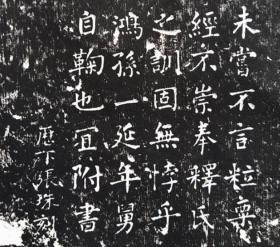 未嘗不言粒粟
經不崇奉釋氏
之訓固無悖乎
鴻孫一延年舅
自鞠也宜附書
歷下張珠刻